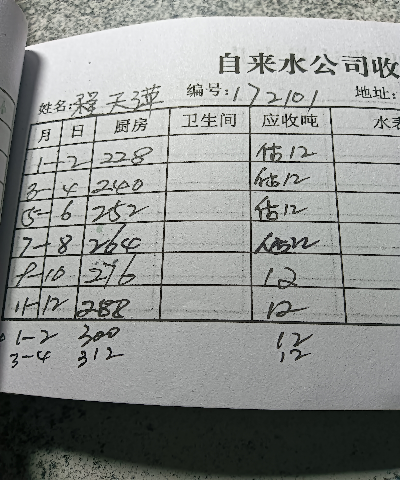 自来水公司收
姓名:程天萍 编号:172101 地址:
月 日 厨房 卫生间 应收吨 水表
1-2 228 估12
3-4 240 估12
5-6 252 估12
7-8 264 估12
9-10 276 12
11-12 288 12
1-2 300 12
3-4 312 12